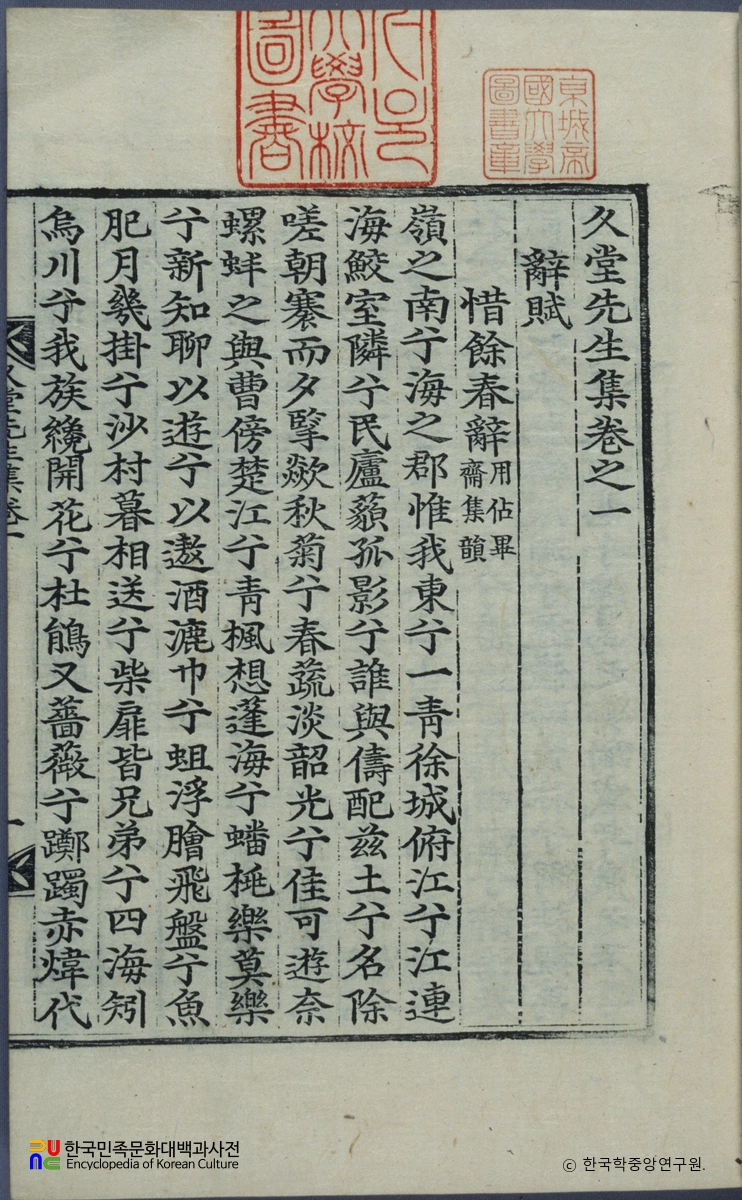 久堂先生集卷之一
辭賦
惜餘春辭 用佔畢齋集韻
嶺之南兮海之郡惟我東兮一靑徐城俯江兮江連
海鮫室隣兮民廬顙孤影兮誰與儔配茲土兮名除
嗟朝搴而夕擥歘秋菊兮春蔬淡韶光兮佳可遊奈
螺蚌之與曹傍楚江兮靑楓想蓬海兮蟠桃樂莫樂
兮新知聊以遊兮以遨酒漉巾兮蛆浮膾飛盤兮魚
肥月幾掛兮沙村暮相送兮柴扉皆兄弟兮四海矧
烏川兮我族纔開花兮杜鵑又薔薇兮躑躅赤煒代
久堂先生集卷一
一
東城帝國大學圖書章
大學校
圖書
한국민족문화대백과사전
Encyclopedia of Korean Culture
ⓒ 한국학중앙연구원.